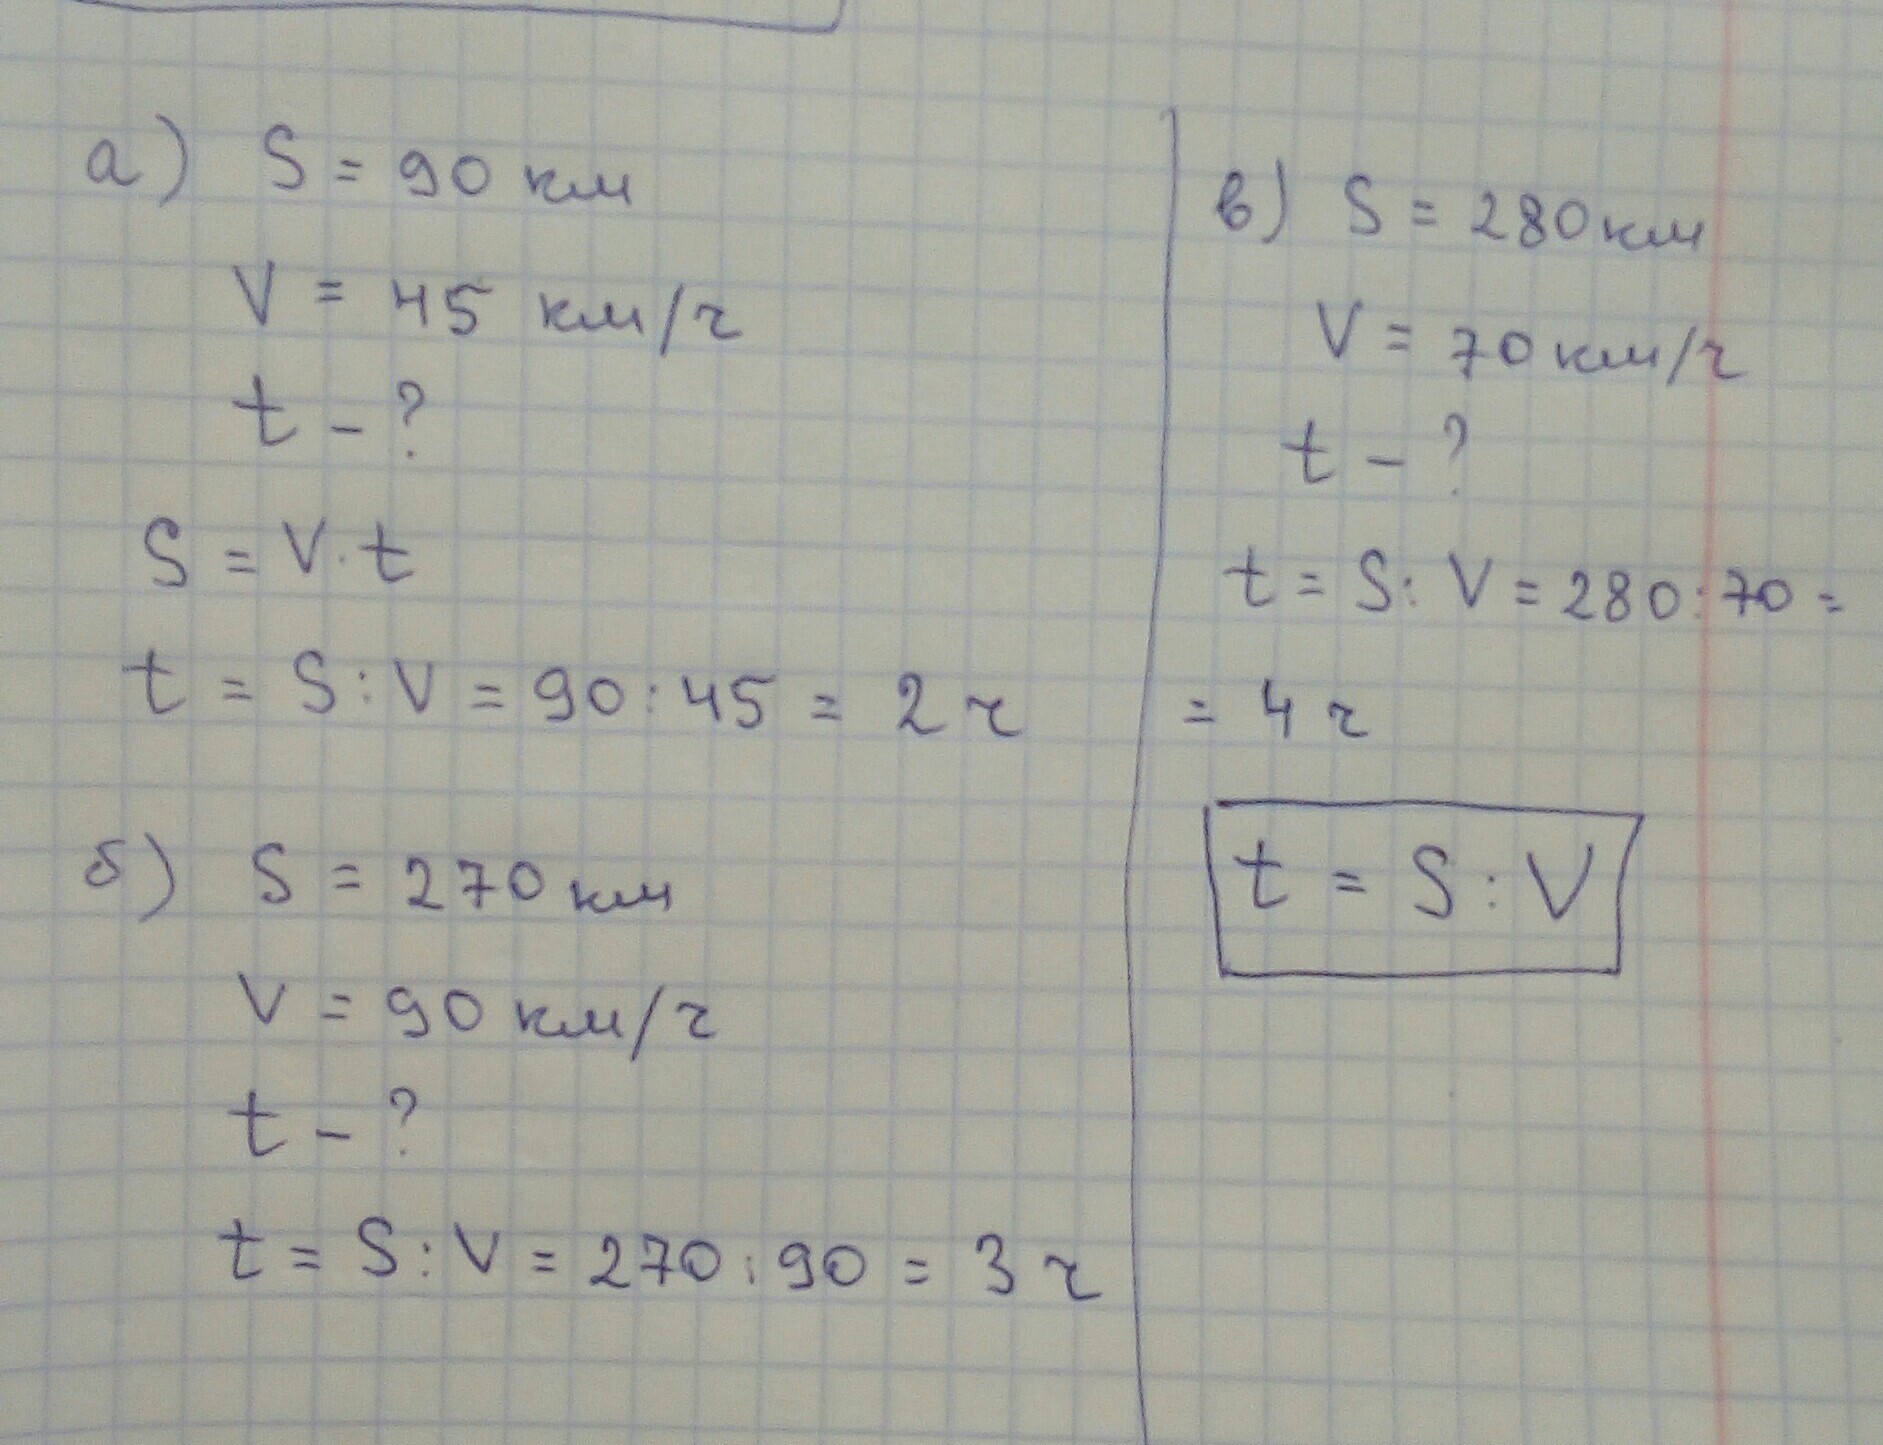 а) S = 90 км
V = 45 км/ч
t - ?
S = V · t
t = S : V = 90 : 45 = 2 ч
б) S = 270 км
V = 90 км/ч
t - ?
t = S : V = 270 : 90 = 3 ч
в) S = 280 км
V = 70 км/ч
t - ?
t = S : V = 280 : 70 =
= 4 ч
t = S : V